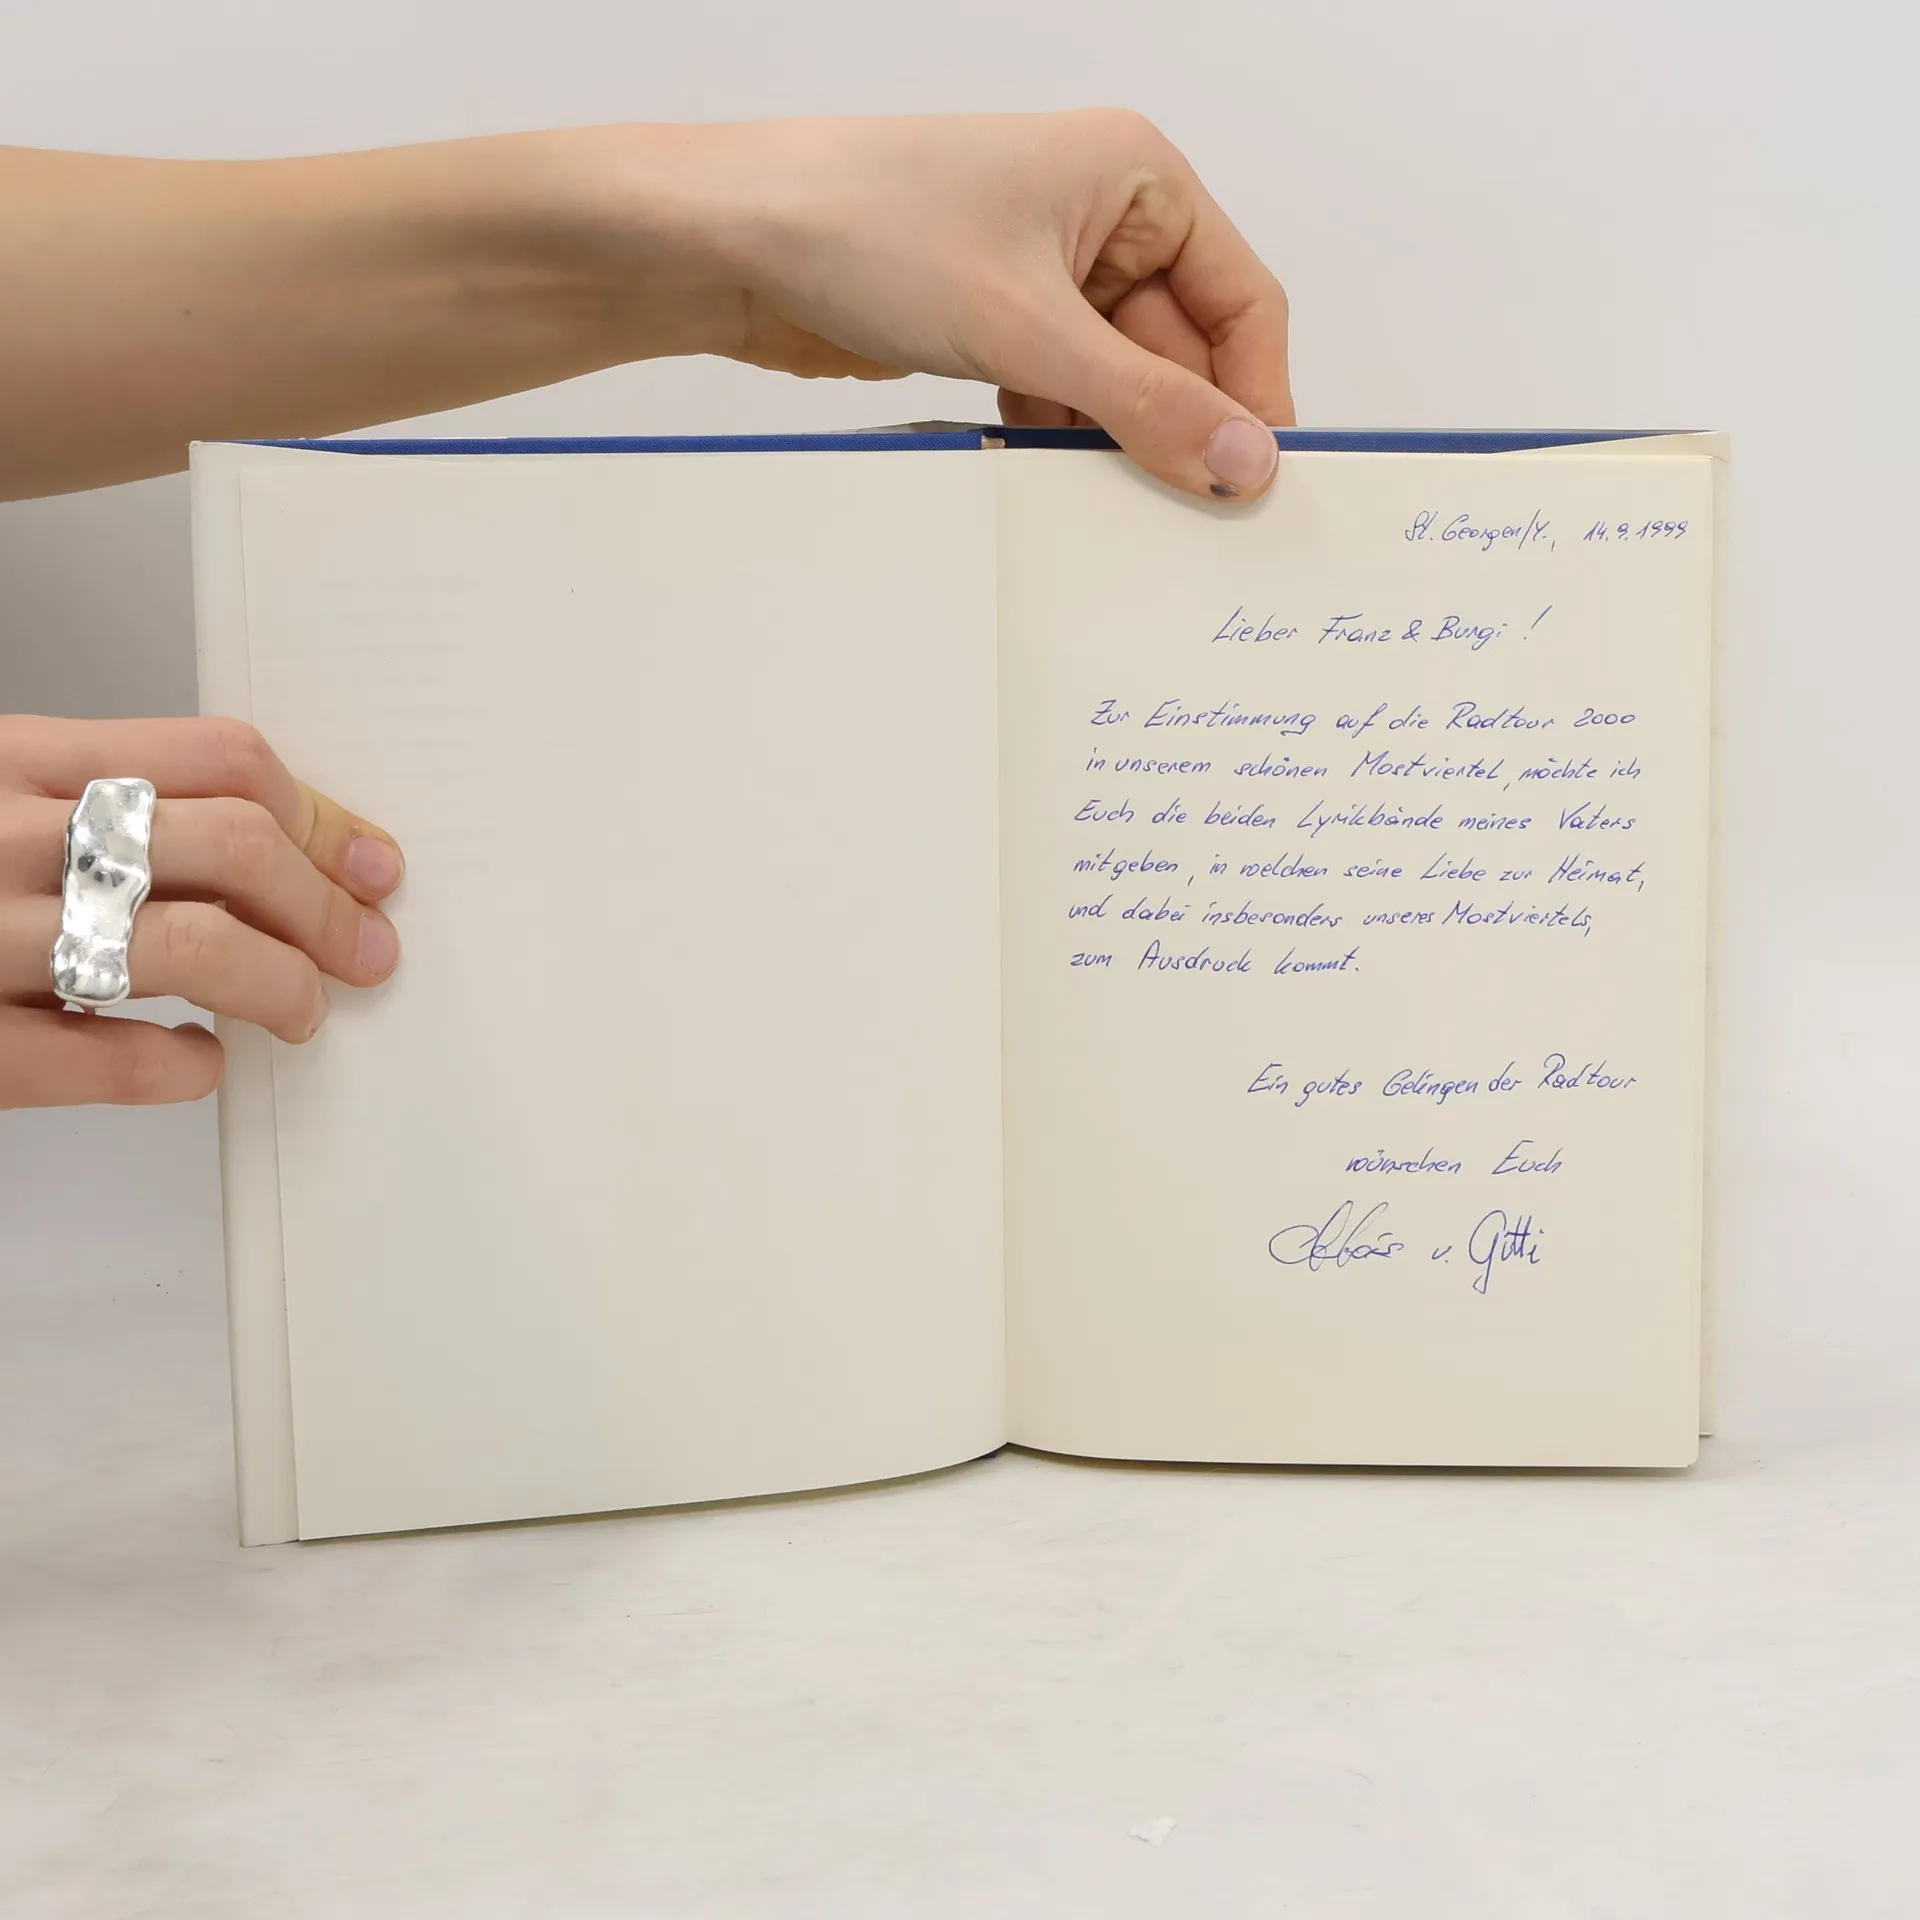 St. Georgen/Y., 14.9.1999
Lieber Franz & Burgi !
Zur Einstimmung auf die Radtour 2000
in unserem schönen Mostviertel, möchte ich
Euch die beiden Lyrikbände meines Vaters
mitgeben, in welchen seine Liebe zur Heimat,
und dabei insbesonders unseres Mostviertels,
zum Ausdruck kommt.
Ein gutes Gelingen der Radtour
wünschen Euch
Alois u. Gitti